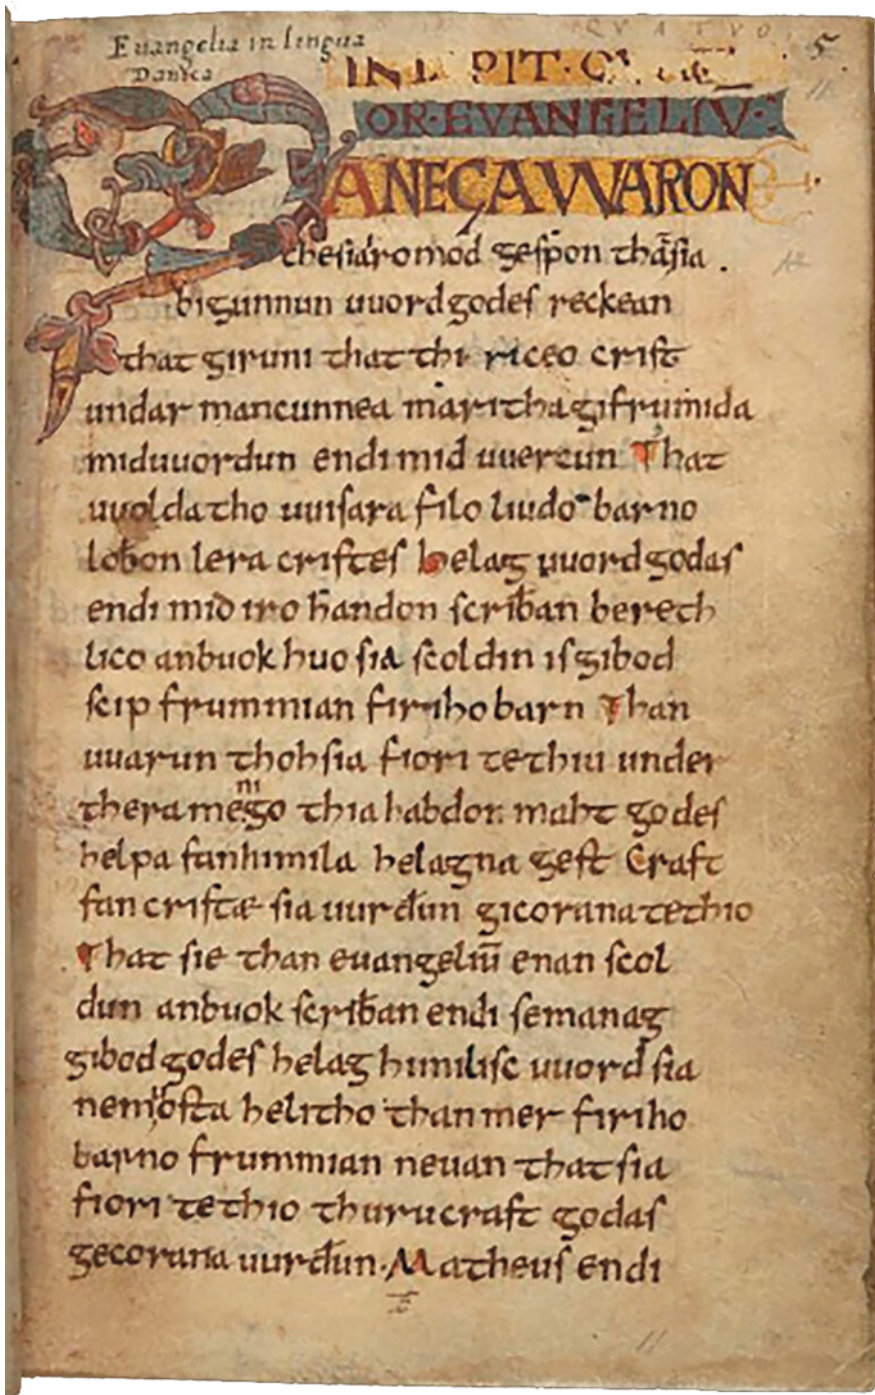 QVATVO
5
Euangelia in lingua
Danica
INCIPIT·QVAT
OR·EVANGELIV·
MANEGA WARON
the sia iro mod gespon thā sia .
bigunnun uuord godes reckean
that giruni that thi riceo crist
undar mancunnea maritha gifrumida
mid uuordun endi mid uuercun That
uuolda tho uuisara filo liudo barno
loƀon lera cristes helag uuord godas
endi mid iro handon scriƀan berech
lico an buok huo sia scoldin is gibod
scip frummian firiho barn Than
uuarun thoh sia fiori te thiu under
thera menigo thia habdon maht godes
helpa fan himila helagna gest Craft
fan cristæ sia uurđun gicorana te thio
That sie than euangeliū enan scol
dun an buok scriƀan endi se manag
gibod godes helag himilisc uuord sia
ne mosta helitho than mer firiho
barno frummian neuan that sia
fiori te thio thuru craft godas
gecorana uurđun· Matheus endi